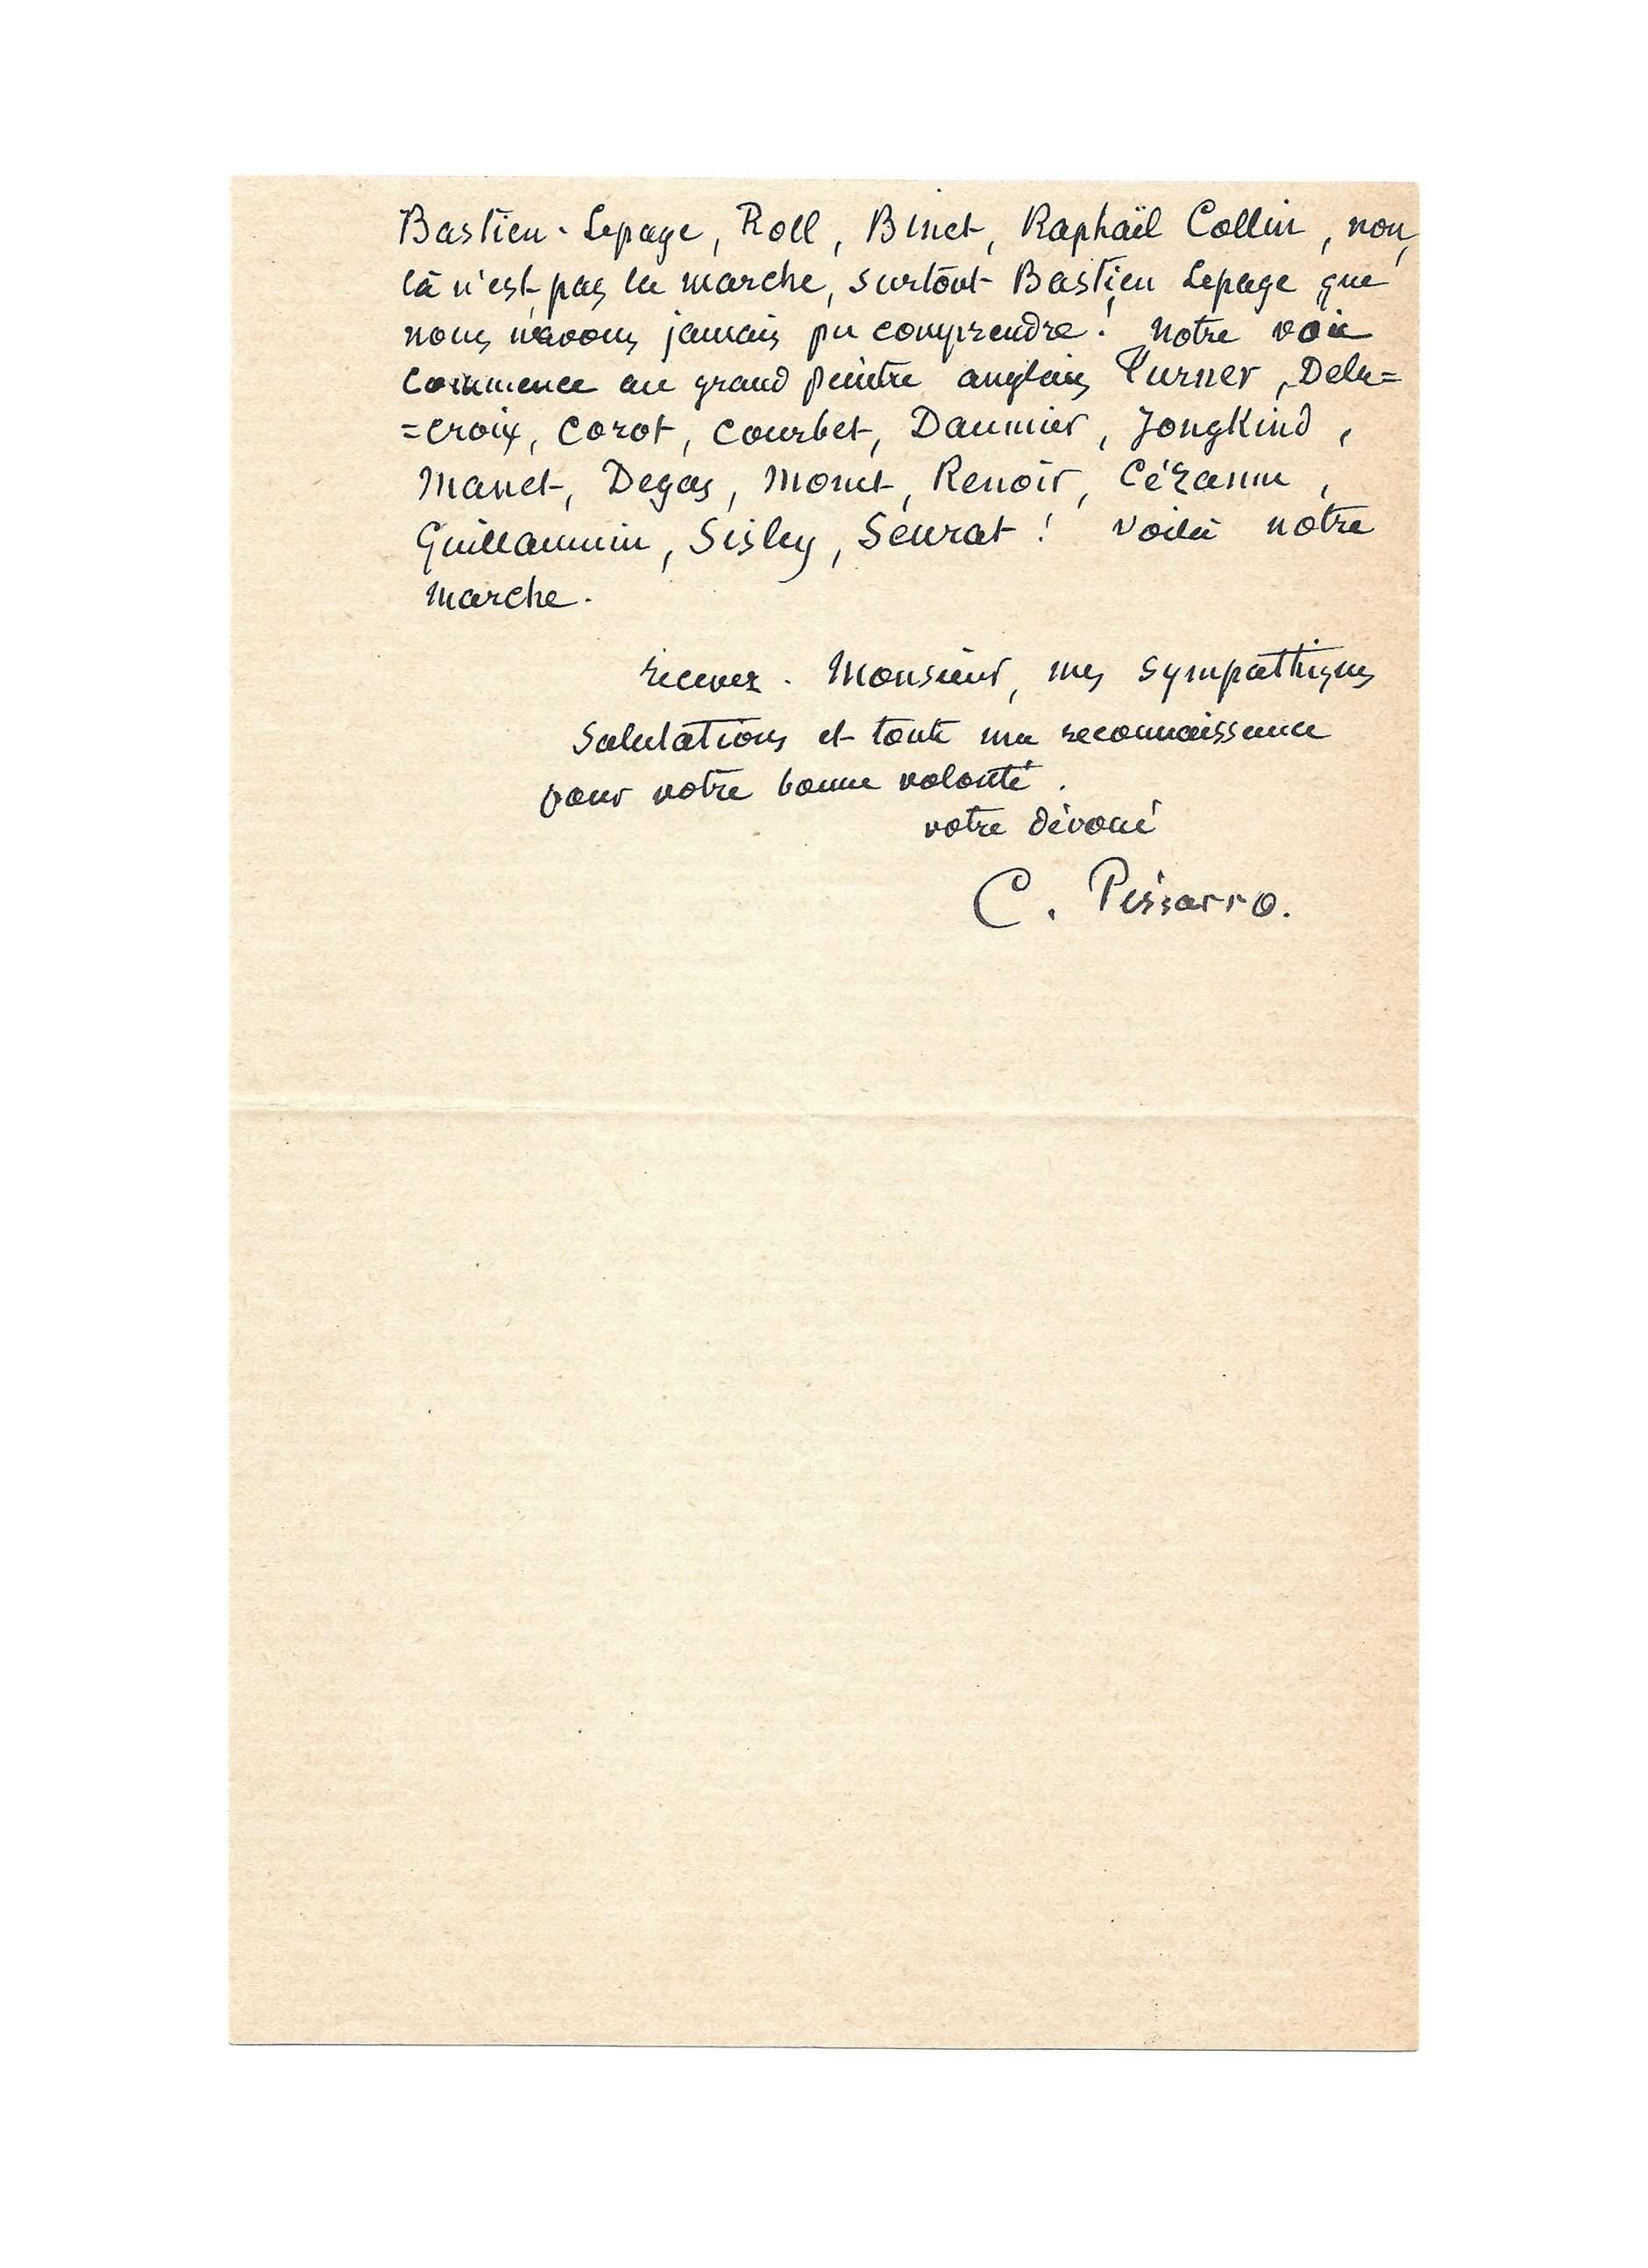 Bastien-Lepage, Roll, Binet, Raphaël Collin, non,
là n'est pas la marche, surtout Bastien Lepage que
nous n'avons jamais pu comprendre! Notre voie
commence au grand peintre anglais Turner, Dela=
=croix, Corot, Courbet, Daumier, Jongkind,
Manet, Degas, Monet, Renoir, Cézanne,
Guillaumin, Sisley, Seurat! Voilà notre
marche.
recevez. Monsieur, mes sympathiques
salutations et toute ma reconnaissance
pour votre bonne volonté.
votre dévoué
C. Pissarro.